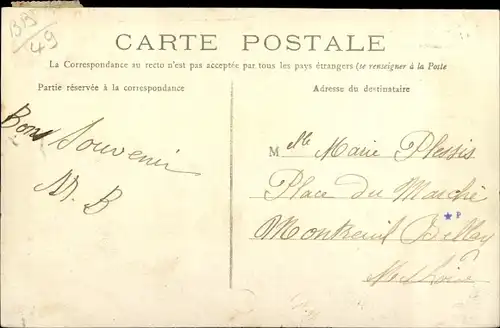 CARTE POSTALE
La Correspondance au recto n'est pas acceptée par tous les pays étrangers (se renseigner à la Poste
Partie réservée à la correspondance
Adresse du destinataire
Bon Souvenir
M. B
Mlle Marie Plessis
Place du Marché
P
Montreuil Bellay
M & Loire